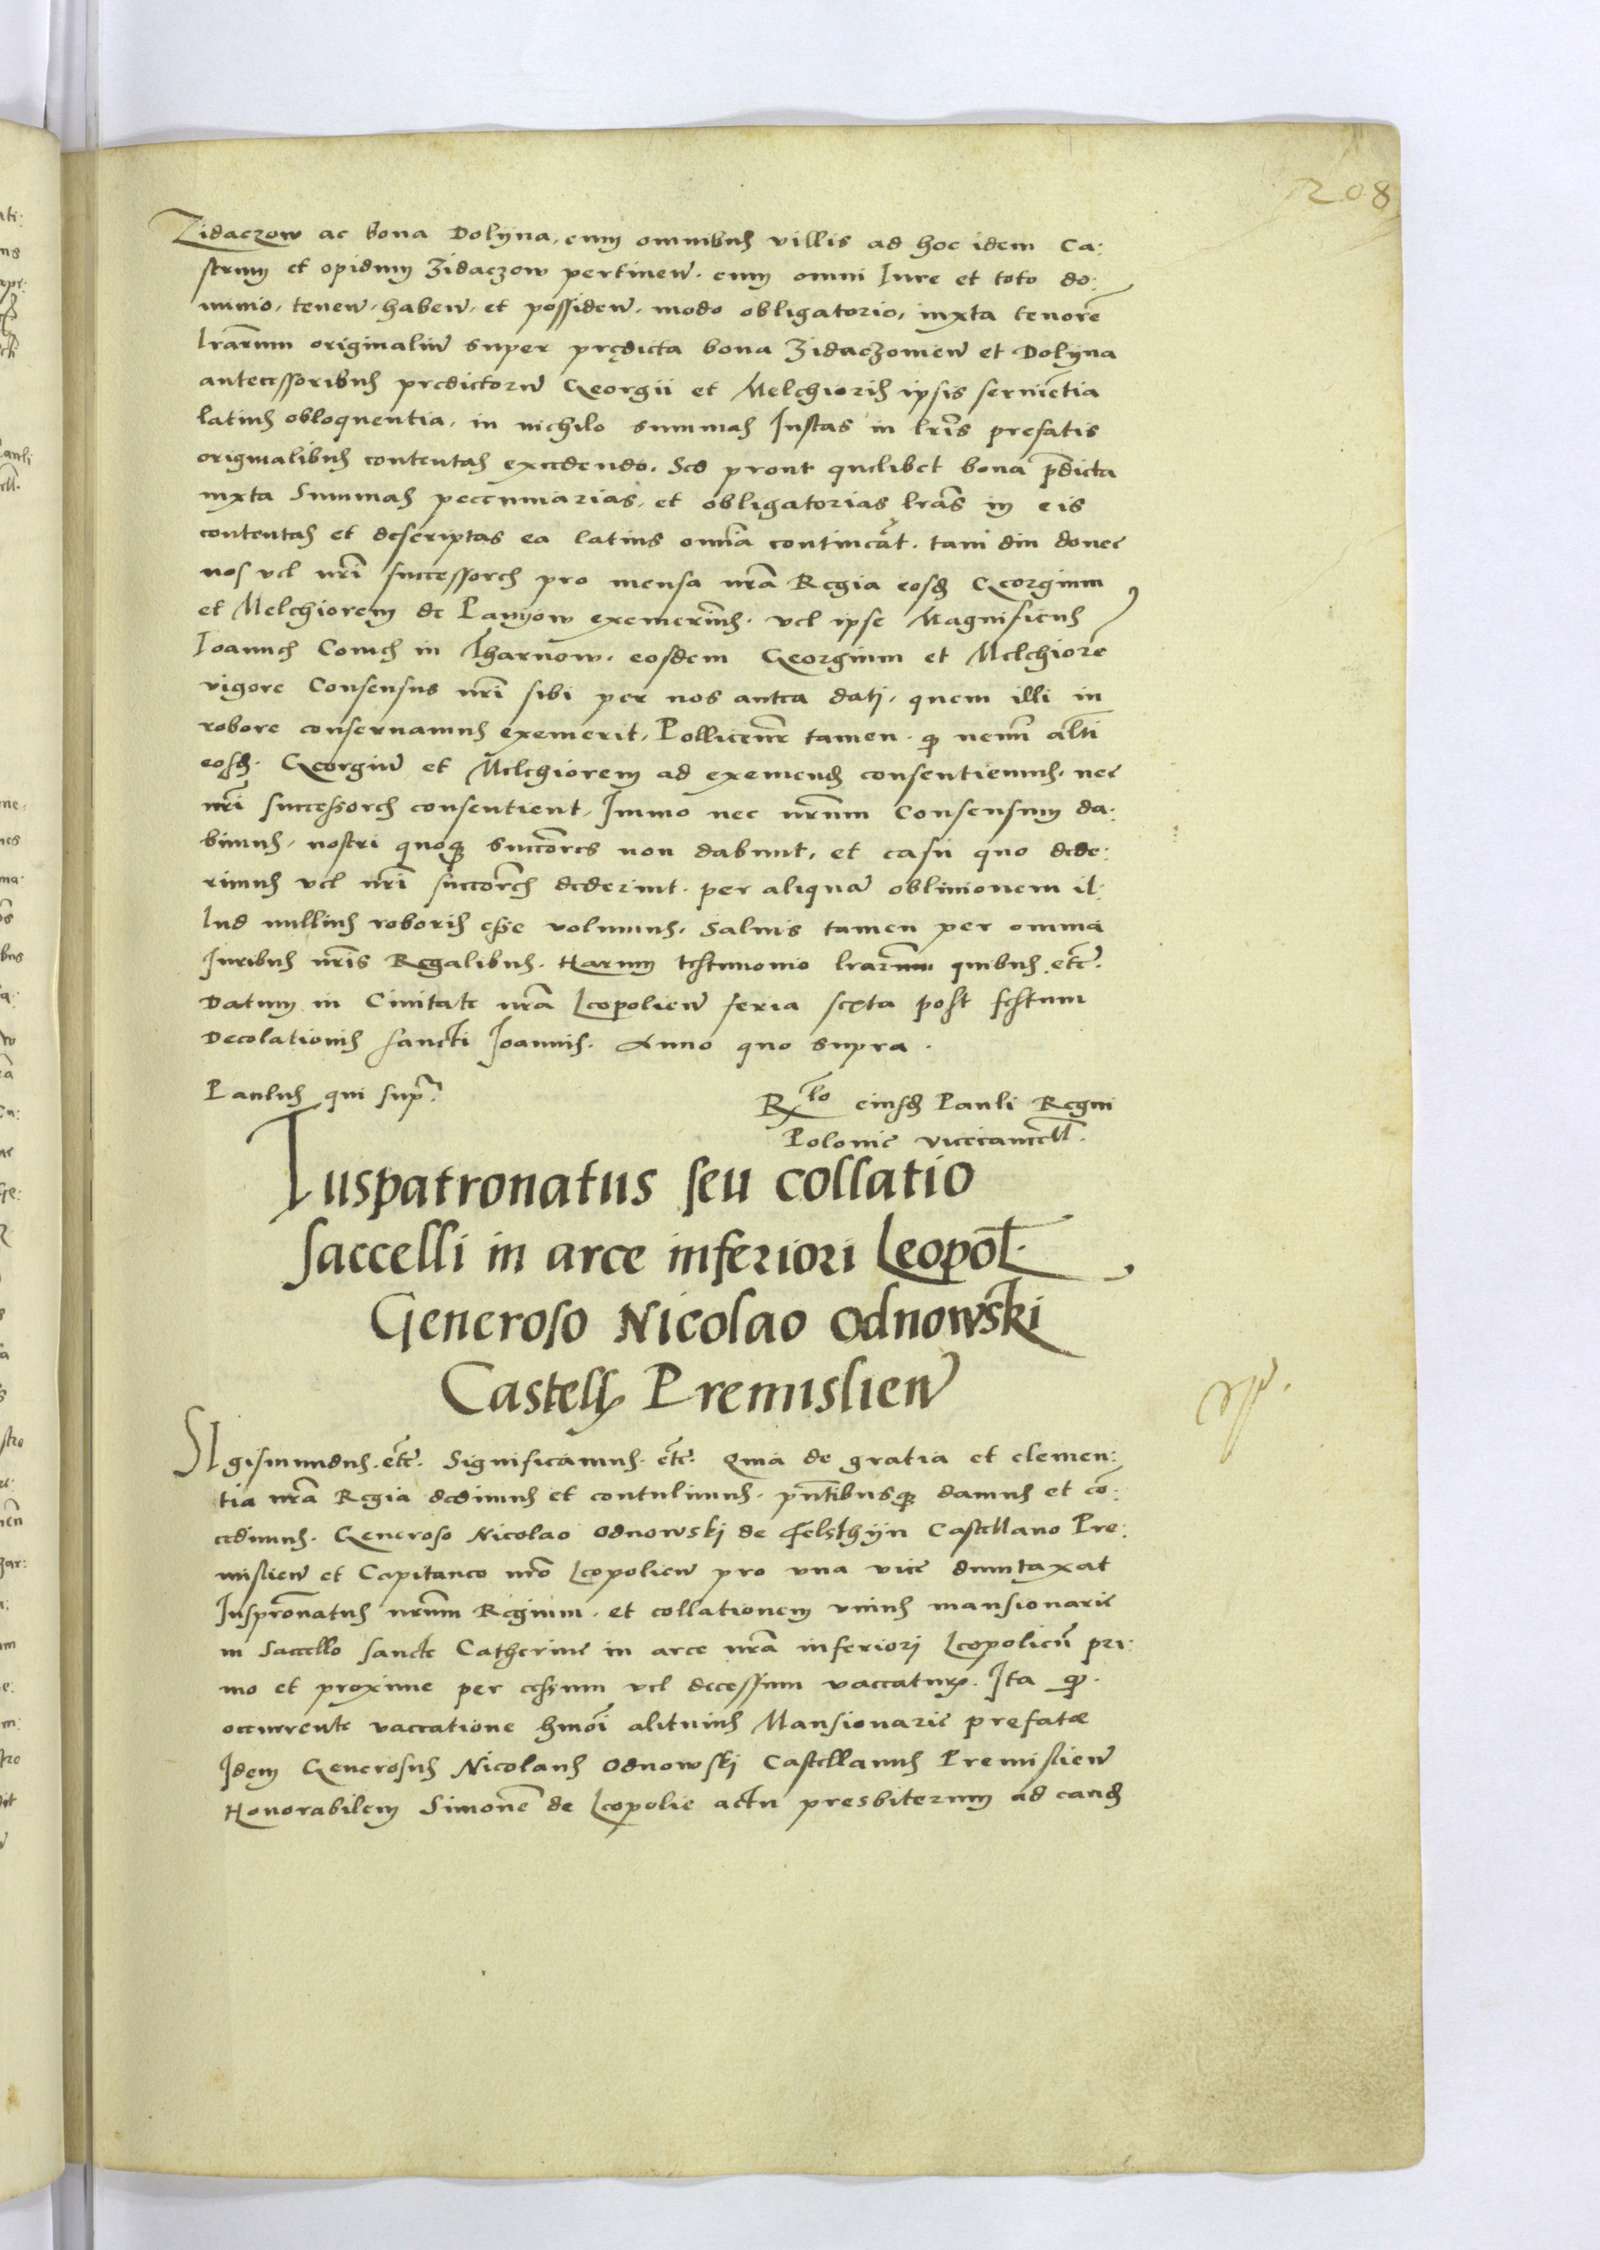 208
Zidaczow ac bona Dolyna, cum omnibus villis ad hoc idem Ca:
strum et opidum Zidaczow pertineñ. cum omni Iure et toto do:
minio, teneñ, habeñ, et possideñ, modo obligatorio, iuxta tenorē
lrārum originaliū super prędicta bona Zidaczowieñ et Dolyna
antecessoribus predictorū Georgii et Melchioris ipsis serviētia
latius obloquentia, in nichilo summas Iustas in lrīs prefatis
originalibus contentas excedendo. Sed prout quelibet bona p̄dicta
iuxta Summas peccuniarias, et obligatorias lrās in eis
contentas et descriptas ea latius omīa contineāt. tam diu donec
nos vel nrī successores pro mensa nrā Regia eosd. Georgium
et Melchiorem de Paniow exemerim̄us. vel ipse Magnificus
Ioannes Comes in Tharnow, eosdem Georgium et Melchiorē
vigore Consensus nrī sibi per nos antea dati, quem illi in
robore conservamus exemerit, Pollicemr̄ tamen. q̄ nemī altī
eosd. Georgiū et Melchiorem ad exemend. consentiemus, nec
nrī successores consentient, Immo nec nrūm Consensum da:
bimus, nostri quoq. succ̄ores non dabunt, et casu quo dede:
rimus vel nrī succōres dederint. per aliquā oblivionem il:
lud nullius roboris esse volumus. Salvis tamen per omnia
Iuribus nrīs Regalibus. Harum testimonio lrārum quibus etc̄.
Datum in Civitate nrā Leopolieñ feria sexta post festum
Decolationis sancti Ioannis. Anno quo supra.
Paulus qui sup̄.
Rlo eiusd. Pauli Regni
Polonie vicecancell.
Iuspatronatus seu collatio
saccelli in arce inferiori Leopol̄.
Generoso Nicolao Odnowski
Castell. Premislieñ
SIgismundus. etc̄. Significamus. etc̄. Quia de gratia et clemen:
tia nrā Regia dedimus et contulimus. pn̄tibusq. damus et cō:
cedimus. Generoso Nicolao Odnowski de Felsthyn Castellano Pre:
mislieñ et Capitaneo nrō Leopolieñ pro una vice duntaxat
Iusprōnatus nrūm Regium. et collationem unius mansionarie
in Saccello sancte Catherine in arce nrā inferiori Leopolieñ pri:
mo et proxime per cessum vel decessum vaccatur. Ita q̄.
occurrente vaccatione hmōi alituius Mansionarie prefatæ
Idem Generosus Nicolaus Odnowski Castellanus Premislieñ
Honorabilem Simonē de Leopolie actu presbiterum ad eand.